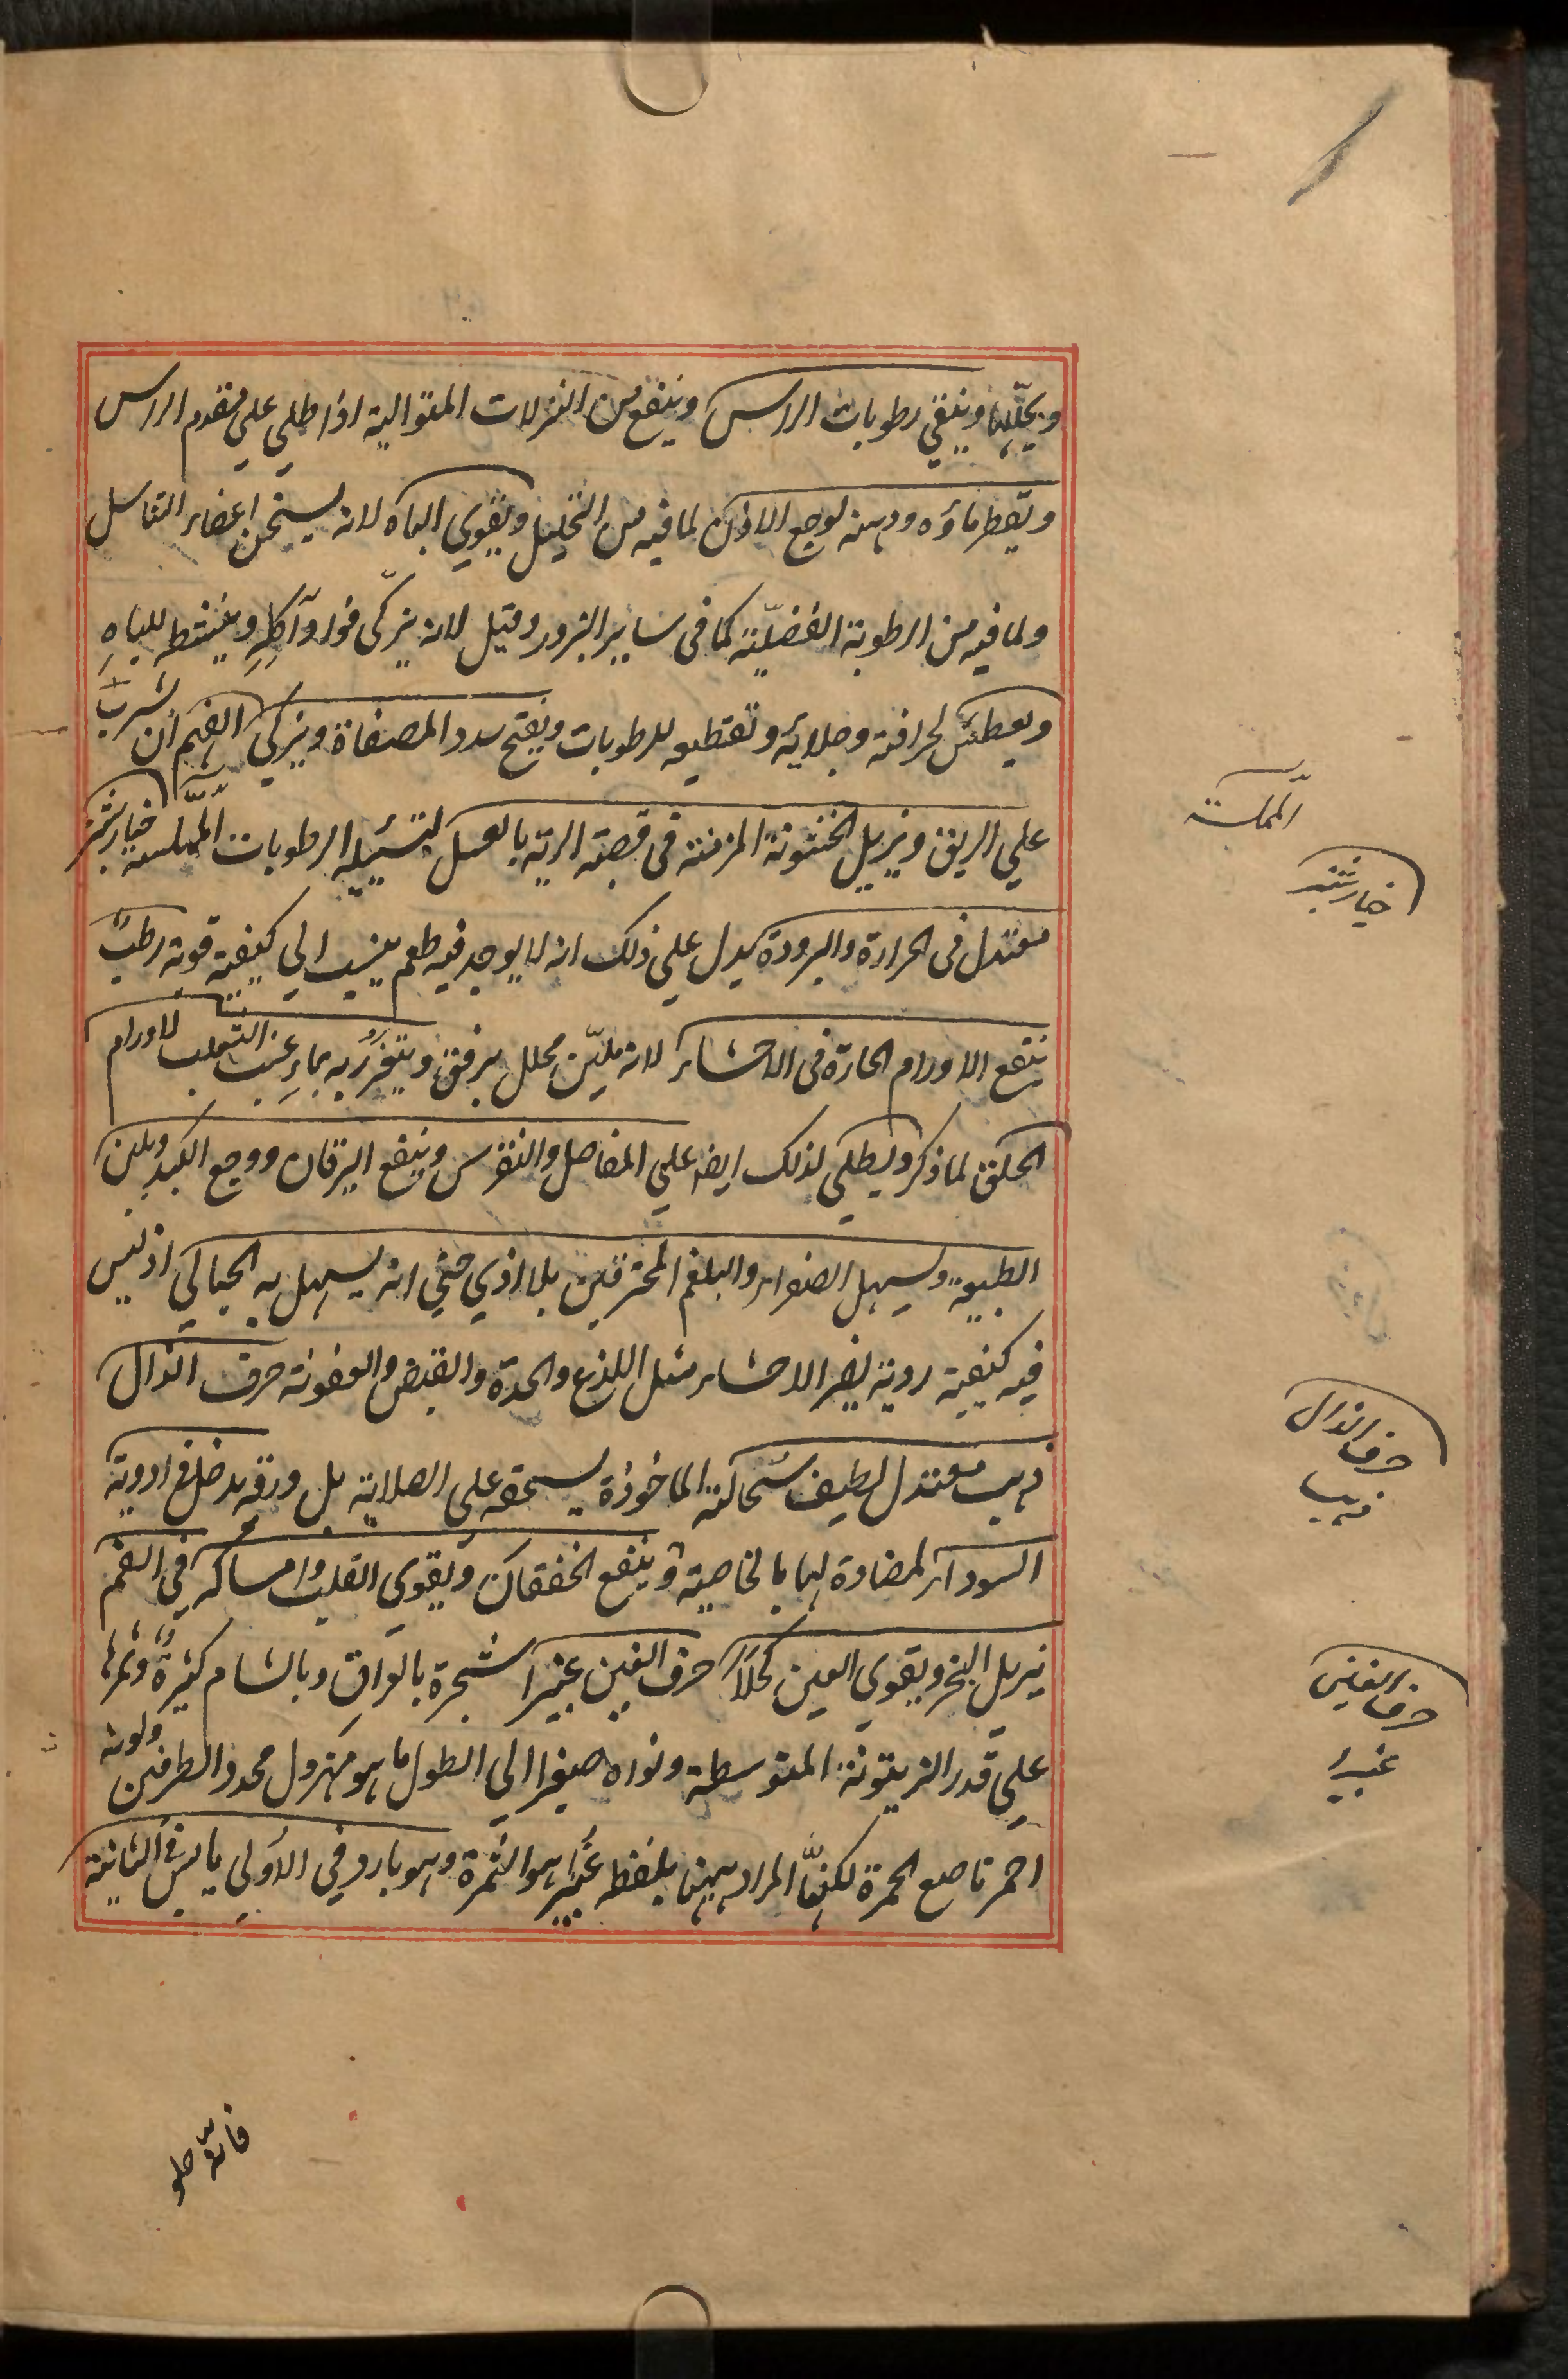 ويحللها وينقي رطوبات الراس وينفع من النزلات المتوالية اذا طلي علي مقدم الراس
ويقطر ماؤه ودهنه لوجع الاذن لما فيه من التحليل ويقوي الباه لانه يسخن اعضاء التناسل
ولما فيه من الرطوبة الفضليّة كما في ساير البزور وقيل لانه يزكّى فواد آكله وينشط للباهِ
ويعطش لحرافته وجلائه وتقطيعه للرطوبات ويفتح سدد المصفاة ويزكي الفهم ان شرب
علي الريق ويزيل الخشونة المزمنة في قصبة الرية بالعسل لتسييله الرطوبات المملسة خيارشنبر
معتدل في الحرارة والبرودة يدل علي ذلك انه لا يوجد فيه طعم ينسب الي كيفية قوية رطب
ينفع الاورام الحارة في الاحشاء لانه يليّن محلل برفق ويتغرر به بماء عنب الثعلب لاورام
الحلق لما ذكر ويطلي لذلك ايضا علي المفاصل والنقرس وينفع اليرقان ووجع الكبد ويلين
الطبيعة ويسهل الصفراء والبلغم المحترقين بلا اذي حتي انه يسهل به الحبالي اذ ليس
فيه كيفية ردية يضر الاحشاء مثل اللذع والحدة والقبض والعفوصة حرف الذال
ذهب معتدل لطيف سحالته الماخوذة يسحقه علي الصلاية بل ورقه يدخل في ادوية
السوداء لمضادة لها بالخاصية وينفع الخفقان ويقوي القلب وامساكه في الفم
يزيل البخر ويقوي العين كحلاً حرف الغين غبيرا شجرة بالعراق وبالشام كثيرة وثمرتها
علي قدر الزيتونة المتوسطة ونواه صغيرا الي الطول ما هو مهزول محدد الطرفين ولونه
احمر ناصع الحمرة لكنّ المراد ههنا بلفظ غبيرا هو الثمرة وهو بارد في الاولي يابس في الثانية
المملسة
خيارشنبر
حرف الذال
ذهب
حرف الغين
غبيرا